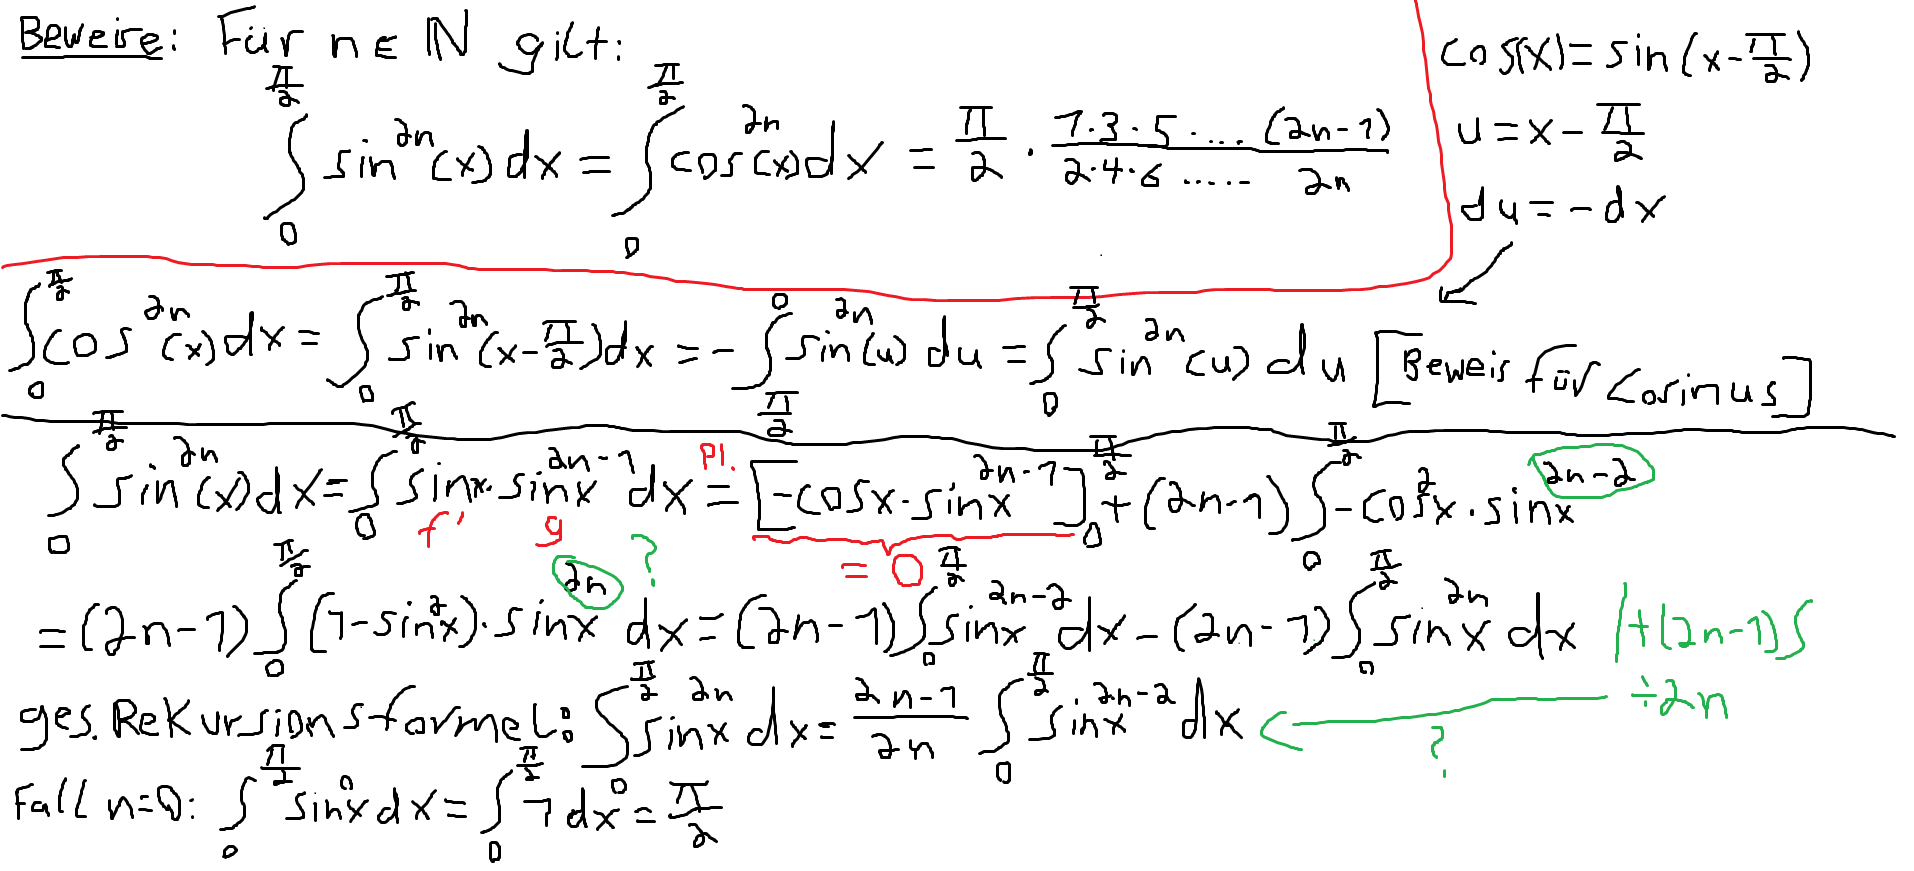 Beweise: Für n ∈ ℕ gilt:
∫₀^{π/2} sin^{2n}(x) dx = ∫₀^{π/2} cos^{2n}(x) dx = π/2 · (1·3·5·....(2n-1))/(2·4·6 ..... 2n)
cos(x) = sin(x - π/2)
u = x - π/2
du = -dx
∫₀^{π/2} cos^{2n}(x) dx = ∫₀^{π/2} sin^{2n}(x - π/2) dx = - ∫_{π/2}^{0} sin^{2n}(u) du = ∫₀^{π/2} sin^{2n}(u) du [Beweis für Cosinus]
∫₀^{π/2} sin^{2n}(x) dx = ∫₀^{π/2} sinx · sinx^{2n-1} dx PI. = [-cosx · sinx^{2n-1}]₀^{π/2} + (2n-1) ∫₀^{π/2} -cos²x · sinx^{2n-2}
f' g = 0
= (2n-1) ∫₀^{π/2} (1-sin²x) · sinx^{2n} ? dx = (2n-1) ∫₀^{π/2} sinx^{2n-2} dx - (2n-1) ∫₀^{π/2} sinx^{2n} dx | +(2n-1) ∫
ges. Rekursionsformel: ∫₀^{π/2} sinx^{2n} dx = (2n-1)/(2n) ∫₀^{π/2} sinx^{2n-2} dx ← ? ÷2n
Fall n=0: ∫₀^{π/2} sin⁰x dx = ∫₀^{π/2} 1 dx⁰ = π/2